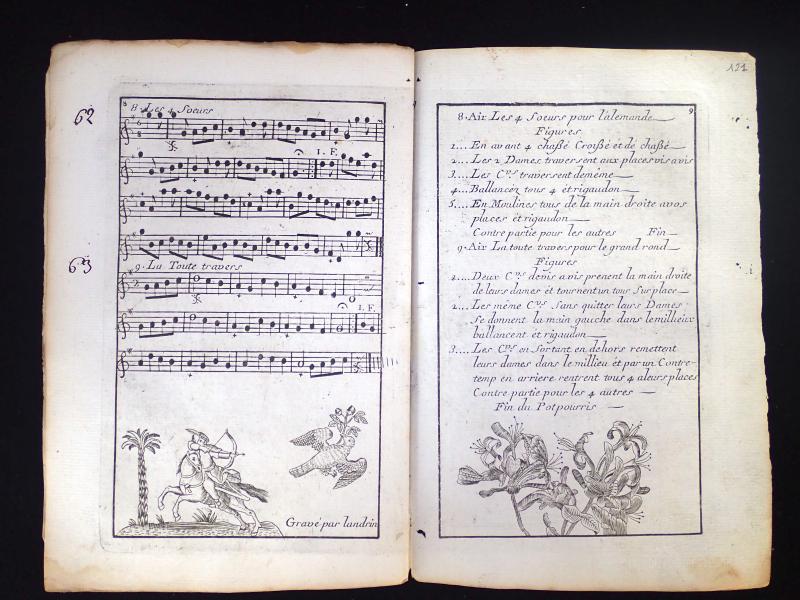 62
8
8. Les 4 Soeurs
1. F.
63
9. La Toute travers
1. F.
Gravé par landrin
121
9
8. Air Les 4 Soeurs pour l'alemande
Figures
1.... En avant 4 chaßé Croißé et de chaßé
2... Les 2 Dames traversent aux places vis avis
3.... Les C.ers traversent demême
4... Ballancéz tous 4 et rigaudon
5.... En Moulines tous de la main droite avos
places et rigaudon
Contre partie pour les autres Fin
9. Air La toute travers pour le grand rond
Figures
1.... Deux C.ers devis avis prenent la main droite
de leurs dames et tournent un tous Sur place
2.... Les même C.ers Sans quitter leurs Dames
Se donnent la main gauche dans le millieux
ballancent et rigaudon
3.... Les C.ers en Sortant en dehors remettent
leurs dames dans le millieu et par un Contre-
temp en arriere rentrent tous 4 aleurs places
Contre partie pour les 4 autres
Fin du Potpourris